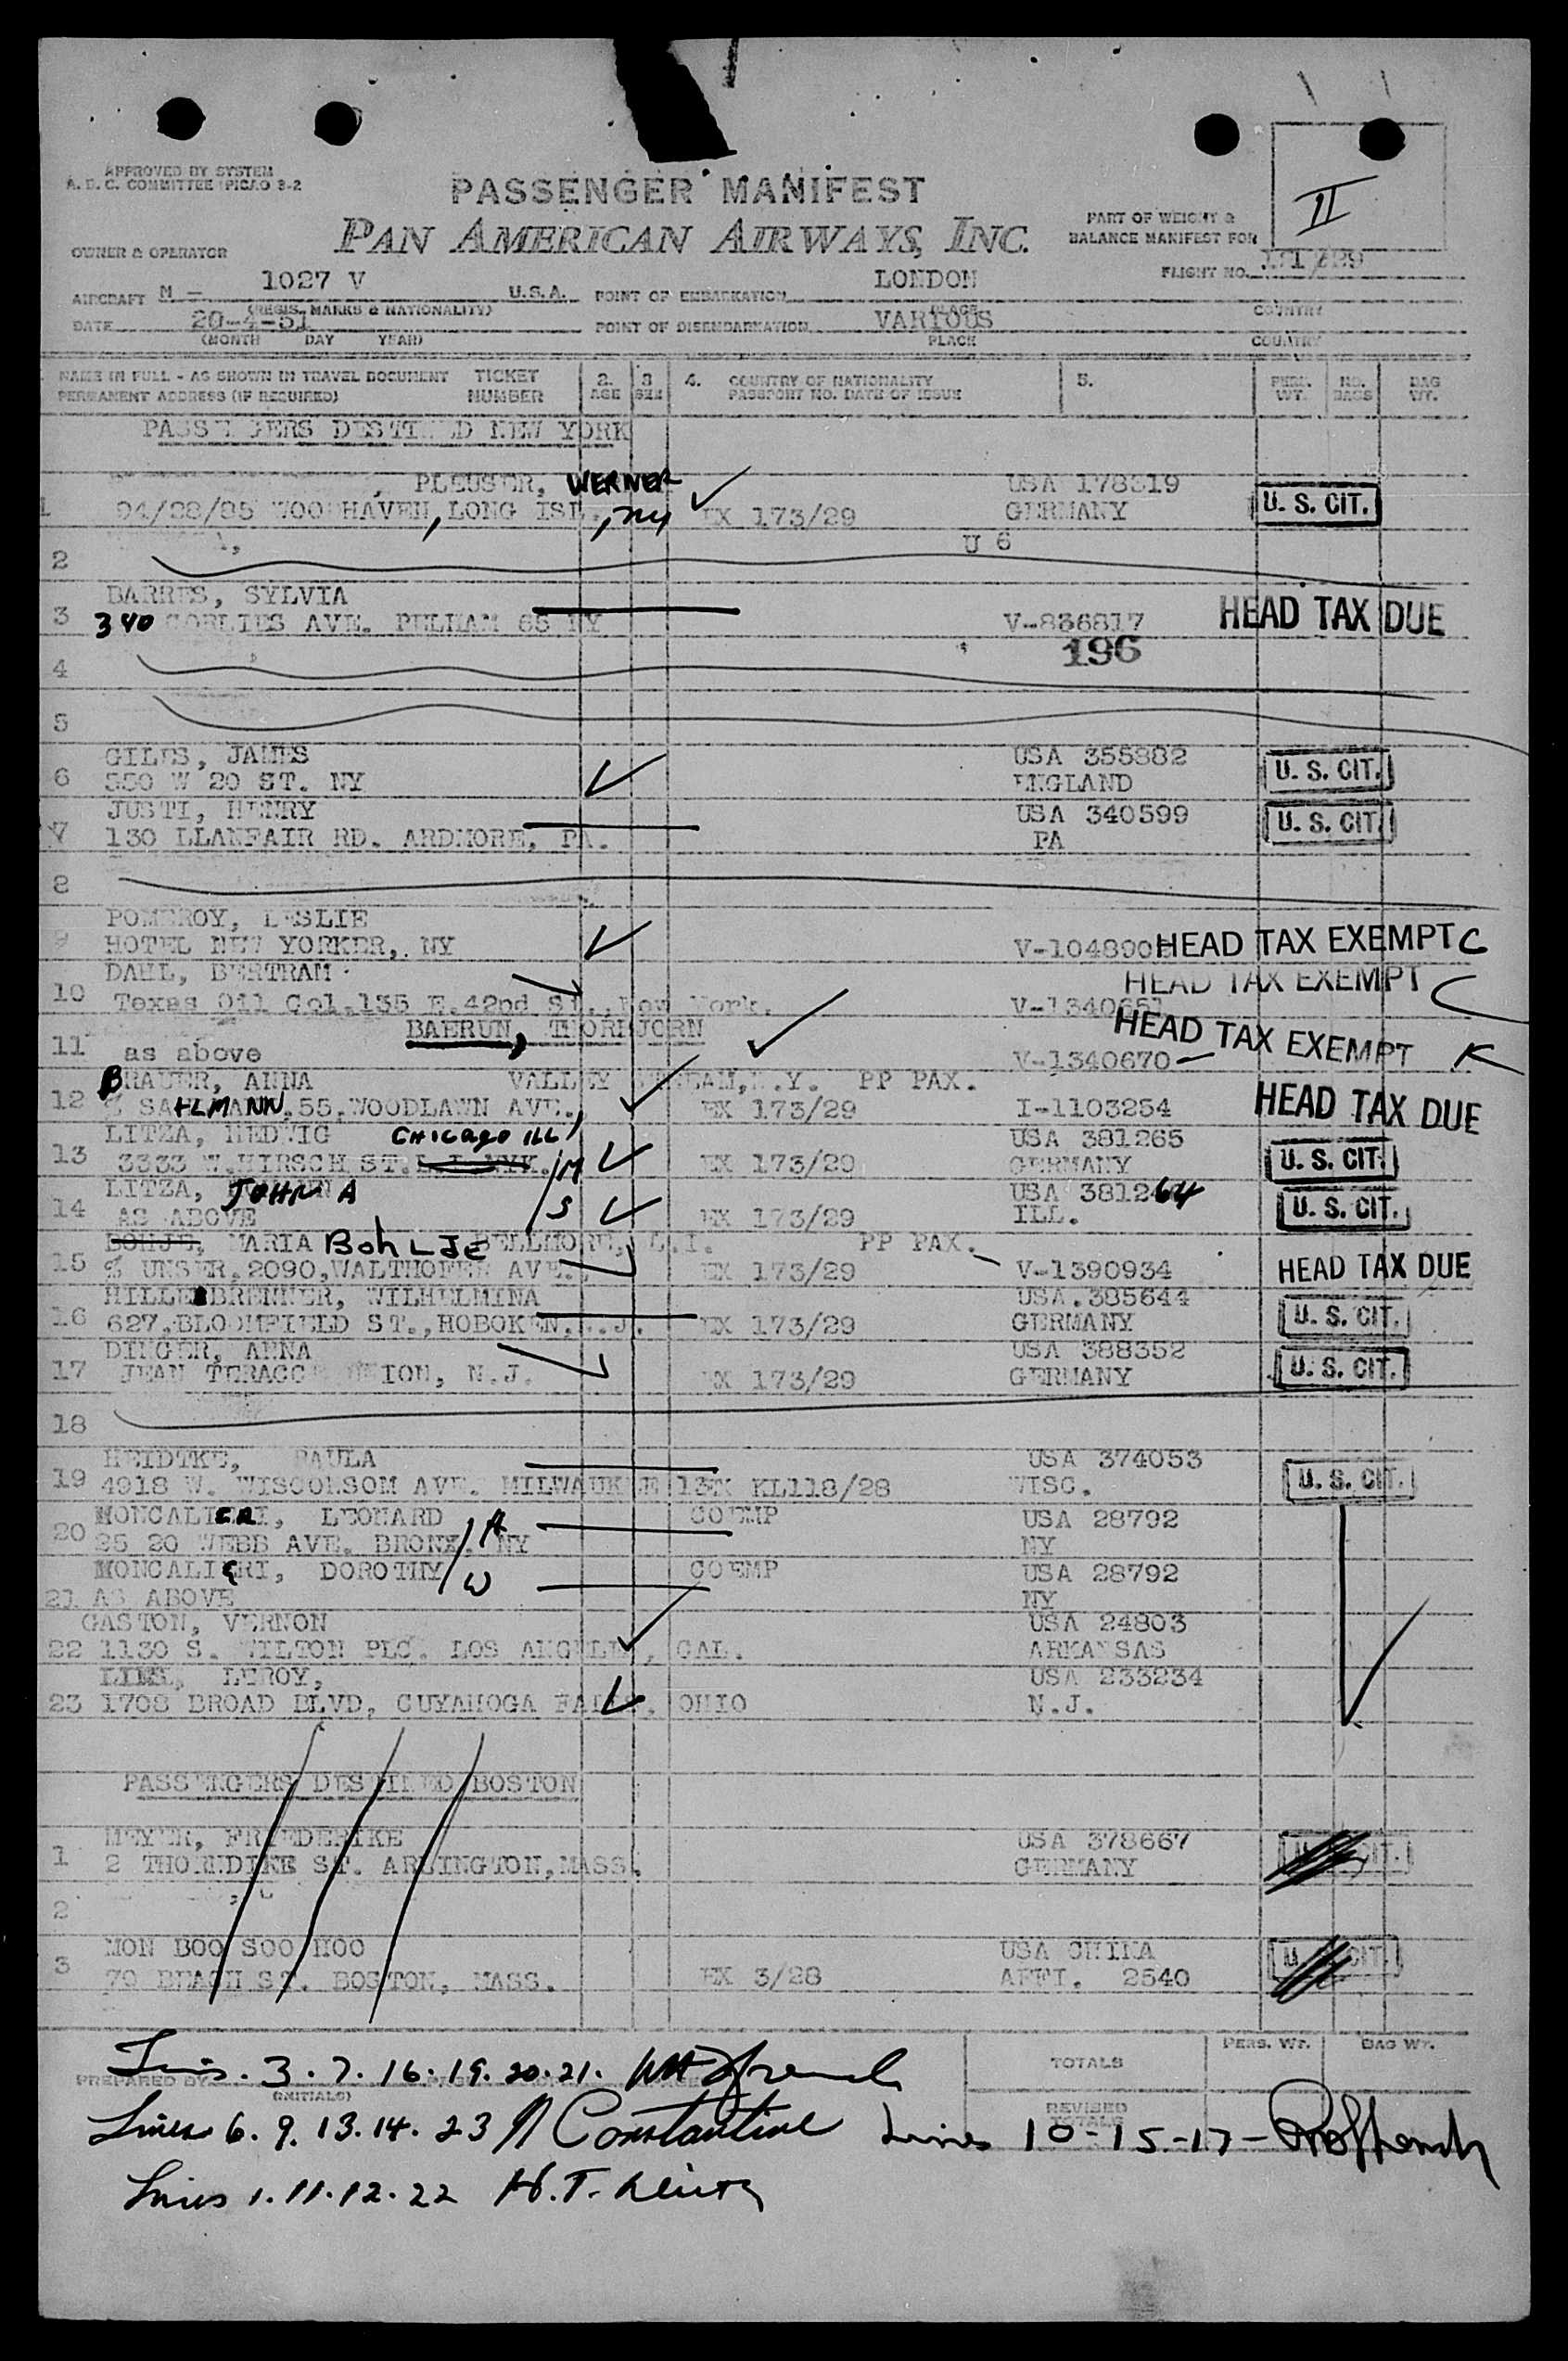 APPROVED BY SYSTEM
A. T. C. COMMITTEE (PICAO 3-2
PASSENGER MANIFEST
PAN AMERICAN AIRWAYS, INC.
II
PART OF WEIGHT &
BALANCE MANIFEST FOR
OWNER & OPERATOR
FLIGHT NO.
AIRCRAFT M - 1027 V U.S.A. POINT OF EMBARKATION LONDON
(REGIS. MARKS & NATIONALITY) PLACE COUNTRY
DATE 20-4-51 POINT OF DISEMBARKATION VARIOUS
(MONTH DAY YEAR) PLACE COUNTRY
NAME IN FULL - AS SHOWN IN TRAVEL DOCUMENT TICKET 2. 3 4. COUNTRY OF NATIONALITY 5. PERS. NO. BAG
PERMANENT ADDRESS (IF REQUIRED) NUMBER AGE SEX PASSPORT NO. DATE OF ISSUE WT. BAGS WT.
PASSENGERS DESTINED NEW YORK
, PLEUSER, WERNER USA 178319
1 94/28/85 WOODHAVEN, LONG ISL., NY EX 173/29 GERMANY U. S. CIT.
2 U 6
BARRES, SYLVIA
3 340 CORLIES AVE. PELHAM 65 NY V-836817 HEAD TAX DUE
4 196
5
GILES, JAMES USA 355882
6 550 W 20 ST. NY ENGLAND U. S. CIT.
JUSTI, HENRY USA 340599
7 130 LLANFAIR RD. ARDMORE, PA. PA U. S. CIT.
8
POMEROY, LESLIE
9 HOTEL NEW YORKER, NY V-104890 HEAD TAX EXEMPT C
DAHL, BERTRAM HEAD TAX EXEMPT C
10 Texas Oil Col.135 E.42nd St., New York. V-1340651
BAERUN, THORBJORN HEAD TAX EXEMPT
11 as above V-1340670
BRAUER, ANNA VALLEY STREAM, N.Y. PP PAX.
12 % SAHLMANN, 55, WOODLAWN AVE., EX 173/29 I-1103254 HEAD TAX DUE
LITZA, HEDWIG CHICAGO ILL, USA 381265
13 3333 W. HIRSCH ST. L.I. NYK. /M EX 173/29 GERMANY U. S. CIT.
LITZA, JOHN A USA 381264
14 AS ABOVE /S EX 173/29 ILL. U. S. CIT.
BOHJE, MARIA BohLJE BELLMORE, L.I. PP PAX.
15 % UNSER.2090,WALTHOFEN AVE., EX 173/29 V-1390934 HEAD TAX DUE
HILLEBRENNER, WILHELMINA USA.385644
16 627, BLOOMFIELD ST., HOBOKEN, N.J. EX 173/29 GERMANY U. S. CIT.
DINGER, ANNA USA 388352
17 JEAN TERACCE UNION, N.J. EX 173/29 GERMANY U. S. CIT.
18
HEIDTKE, PAULA USA 374053
19 4918 W. WISCONSOM AVE. MILWAUKEE 13 EX KL118/28 WISC. U. S. CIT.
MONCALIERI, LEONARD /H COEMP USA 28792
20 25 20 WEBB AVE. BRONX, NY NY
MONCALIERI, DOROTHY /W COEMP USA 28792
21 AS ABOVE NY
GASTON, VERNON USA 24803
22 1130 S. WILTON PLC. LOS ANGELES, CAL. ARKANSAS
LEROY, USA 233234
23 1708 BROAD BLVD, CUYAHOGA FALLS, OHIO N.J.
PASSENGERS DESTINED BOSTON
MEYER, FRIEDERIKE USA 378667
1 2 THORNDIKE ST. ARLINGTON, MASS. GERMANY
2
MON BOO SOO HOO USA CHINA
3 79 BEACH ST. BOSTON, MASS. EX 3/28 AFFI. 2540
TOTALS PERS. WT. BAG WT.
PREPARED BY
(INITIALS)
Lines. 3. 7. 16. 19. 20. 21.
REVISED
TOTALS
Lines 6. 9. 13. 14. 23 Constantine Lines 10-15-17-
Lines 1. 11. 12. 22 H.T.